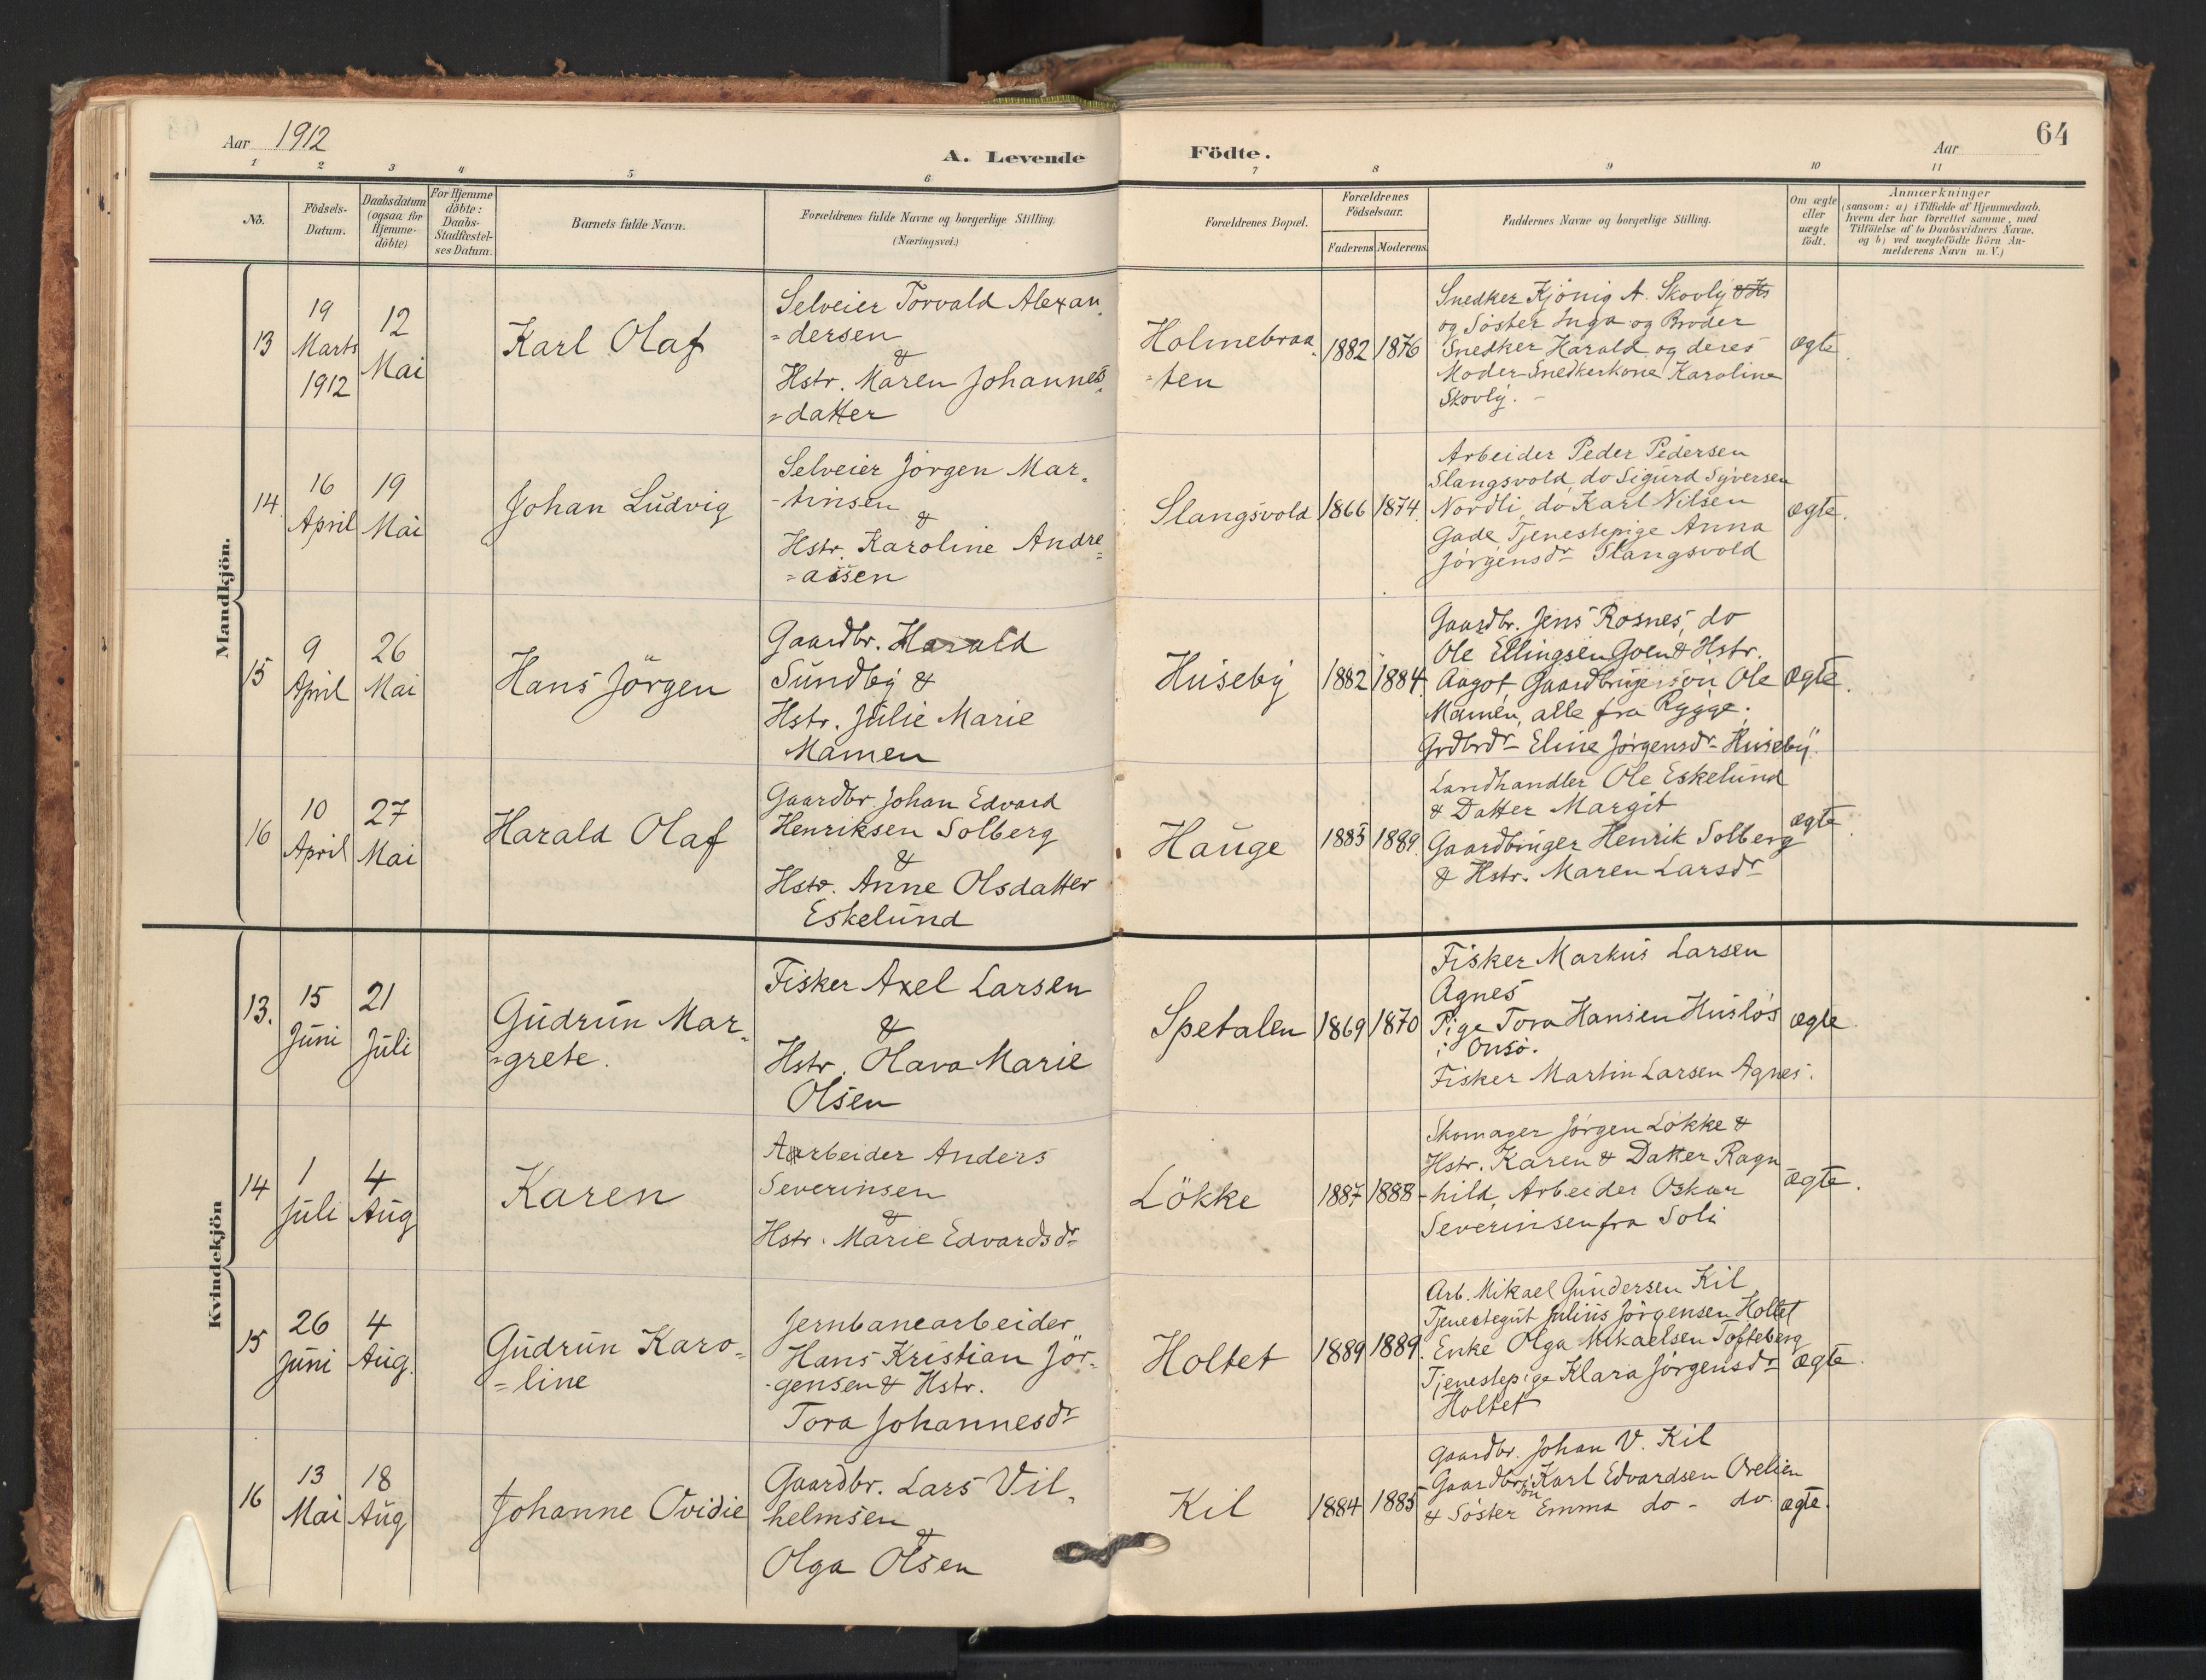 Aar 1912
A. Levende Födte.
Aar
64
1 2 3 4 5 6 7 8 9 10 11
No.
Födsels-
Datum.
Daabsdatum
(ogsaa for
Hjemme-
döbte)
For Hjemme
döbte:
Daabs-
Stadfæstel-
ses Datum.
Barnets fulde Navn.
Forældrenes fulde Navne og borgerlige Stilling.
(Næringsvei.)
Forældrenes Bopæl.
Forældrenes
Födselsaar.
Faderens Moderens
Faddernes Navne og borgerlige Stilling.
Om ægte
eller
uægte
födt.
Anmærkninger
(saasom: a) i Tilfælde af Hjemmedaab,
hvem der har forrettet samme, med
Tilföielse af to Daabsvidners Navne.
og b) ved uægtefödte Börn An-
melderens Navn m. V.)
Mandkjön.
13
19
Marts
1912
12
Mai
Karl Olaf
Selveier Torvald Alexan-
=dersen
&
Hstr. Maren Johannes=
=datter
Holmebraa-
=ten
1882 1876
Snedker Kjönig A. Skovly & Hs
og Söster Inga og Broder
Snedker Harald og deres
Moder Snedkerkone Karoline
Skovly. -
ægte.
14
16
April
19
Mai
Johan Ludvig
Selveier Jörgen Mar-
-tinsen
&
Hstr. Karoline Andre=
=assen
Slangsvold
1866 1874.
Arbeider Peder Pedersen
Slangsvold, do Sigurd Syversen
Nordli, do Karl Nilsen
Gade, Tjenestepige Anna
Jörgensdr Slangsvold
ægte.
15
9
April
26
Mai
Hans Jörgen
Gaardbr. Harald
Sundby &
Hstr. Julie Marie
Mamen
Huseby
1882 1884
Gaardbr. Jens Rosnes, do
Ole Ellingsen Goen & Hstr.
Aagot, Gaardbrugersön Ole
Mamen, alle fra Rygge.
Grdbrdr Eline Jörgensdr Huseby.
ægte.
16
10
April
27
Mai
Harald Olaf
Gaardbr. Johan Edvard
Henriksen Solberg
&
Hstr. Anne Olsdatter
Eskelund
Hauge
1885 1889.
Landhandler Ole Eskelund
& Datter Margit
Gaardbruger Henrik Solberg
& Hstr. Maren Larsdr
ægte.
Kvindekjön
13.
15
Juni
21
Juli
Gudrun Mar-
=grete.
Fisker Axel Larsen
&
Hstr. Olava Marie
Olsen
Spetalen
1869 1870
Fisker Markus Larsen
Agnes
Pige Tora Hansen Huslös
i Onsö.
Fisker Martin Larsen Agnes.
ægte.
14
1
Juli
4
Aug
Karen
Aarbeider Anders
Severinsen
&
Hstr. Marie Edvardsdr
Lökke
1887 1888
Skomager Jörgen Lökke &
Hstr. Karen & Datter Ragn
-hild, Arbeider Oskar
Severinsen fra Soli
ægte.
15
26
Juni
4
Aug.
Gudrun Karo-
=line
Jernbanearbeider
Hans Kristian Jör-
-gensen & Hstr.
Tora Johannesdr
Holtet
1889 1889.
Arb. Mikael Gundersen Kil
Tjenestegut Julius Jörgensen Holtet
Enke Olga Mikaelsen Tofteberg
Tjenestepige Klara Jörgensdr
Holtet
ægte.
16
13
Mai
18
Aug
Johanne Ovidie
Gaardbr. Lars Vil-
helmsen
&
Olga Olsen
Kil
1884 1885
Gaardbr. Johan V. Kil
Gaardbr. sön Karl Edvardsen Orelien
& Söster Emma do - do.
ægte.